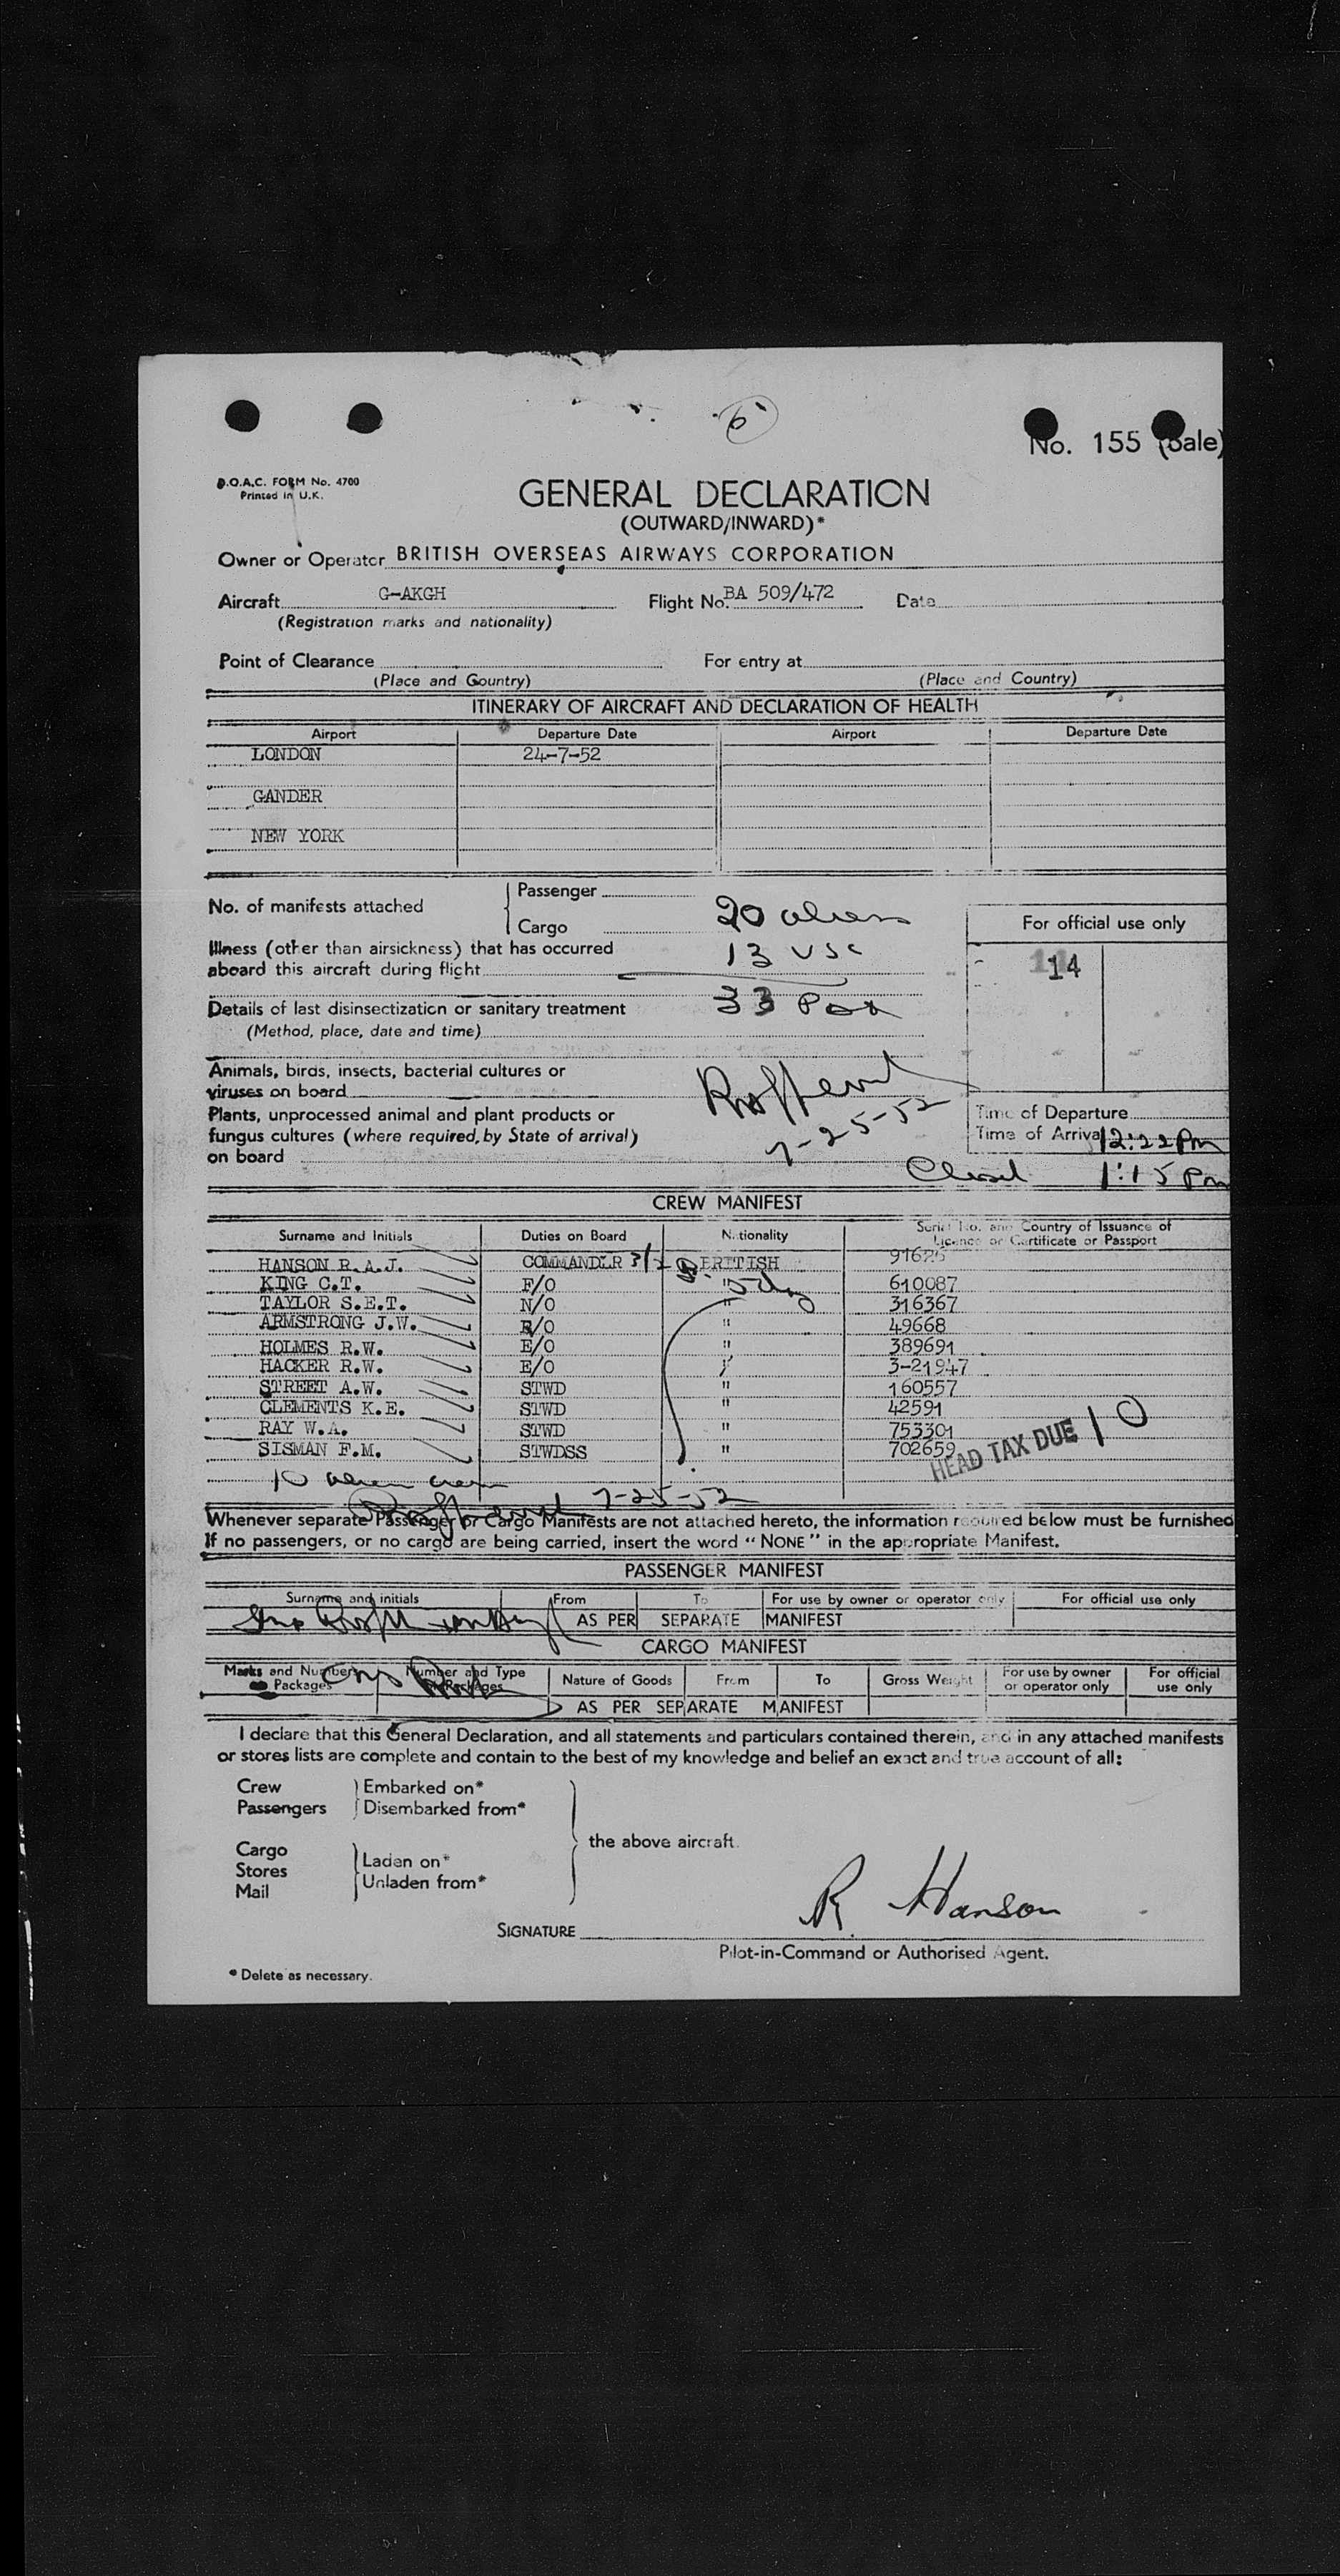 6
No. 155 (Sale)
B.O.A.C. FORM No. 4700
Printed in U.K.
GENERAL DECLARATION
(OUTWARD/INWARD)*
Owner or Operator BRITISH OVERSEAS AIRWAYS CORPORATION
Aircraft G-AKGH Flight No. BA 509/472 Date
(Registration marks and nationality)
Point of Clearance For entry at
(Place and Country) (Place and Country)
ITINERARY OF AIRCRAFT AND DECLARATION OF HEALTH
Airport Departure Date Airport Departure Date
LONDON 24-7-52
GANDER
NEW YORK
No. of manifests attached Passenger
Cargo 20 aliens
For official use only
Illness (other than airsickness) that has occurred
aboard this aircraft during flight 13 USC
14
33 Pax
Details of last disinsectization or sanitary treatment
(Method, place, date and time)
Animals, birds, insects, bacterial cultures or
viruses on board
Plants, unprocessed animal and plant products or
fungus cultures (where required, by State of arrival)
on board
7-25-52
Time of Departure
Time of Arrival 12:22 Pm
Closed 1:15 Pm
CREW MANIFEST
Surname and Initials Duties on Board Nationality Serial No. and Country of Issuance of
Licence or Certificate or Passport
HANSON R.A.J. COMMANDER BRITISH
KING C.T. F/O " 610087
TAYLOR S.E.T. N/O " 316367
ARMSTRONG J.W. R/O " 49668
HOLMES R.W. E/O " 389691
HACKER R.W. E/O " 3-21947
STREET A.W. STWD " 160557
CLEMENTS K.E. STWD " 42591
RAY W.A. STWD " 753301
SISMAN F.M. STWDSS " 702659
HEAD TAX DUE 10
10 alien crew
7-25-52
Whenever separate Passenger or Cargo Manifests are not attached hereto, the information required below must be furnished
If no passengers, or no cargo are being carried, insert the word "NONE" in the appropriate Manifest.
PASSENGER MANIFEST
Surname and initials From To For use by owner or operator only For official use only
AS PER SEPARATE MANIFEST
CARGO MANIFEST
Marks and Numbers Packages Number and Type Packages Nature of Goods From To Gross Weight For use by owner or operator only For official use only
AS PER SEPARATE MANIFEST
I declare that this General Declaration, and all statements and particulars contained therein, and in any attached manifests
or stores lists are complete and contain to the best of my knowledge and belief an exact and true account of all:
Crew Embarked on*
Passengers Disembarked from*
the above aircraft.
Cargo
Stores Laden on*
Mail Unladen from*
R. Hanson
SIGNATURE
Pilot-in-Command or Authorised Agent.
* Delete as necessary.